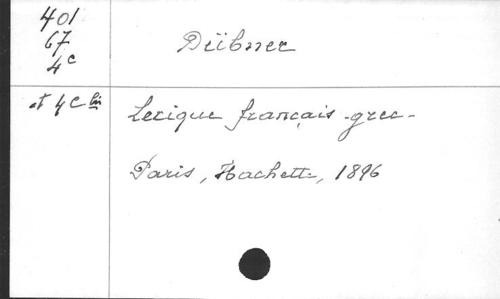 401
67
4c
Dübner
et 4c bis
Lexique français-grec-
Paris, Hachette, 1896